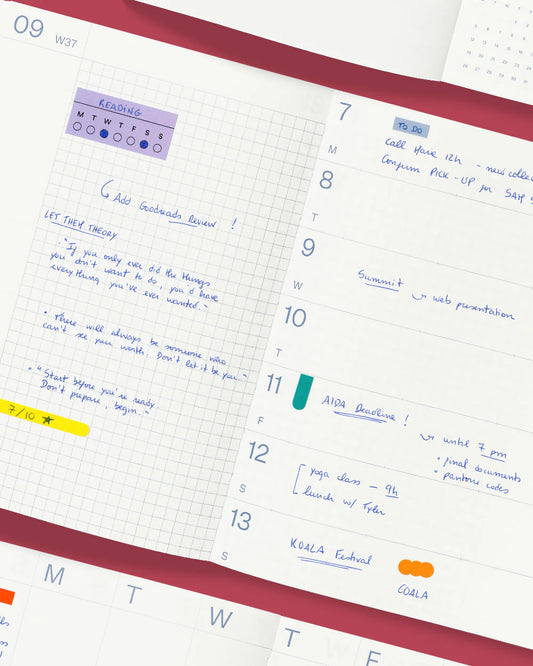 09 W37
READING
M T W T F S S
Add Goodreads Review !
LET THEM THEORY
. "If you only ever did the things
you don't want to do, you'd have
everything you've ever wanted."
• There will always be someone who
can't see your worth. Don't let it be you."
• "Start before you're ready.
Don't prepare, begin."
7/10 ★
7
M
TO DO
Call Have 12h - new
Confirm PICK-UP for
8
T
9
W
Summit web presentation
10
T
11
F
AIDA Deadline !
until 7 pm
• final documents
• pantone codes
12
S
yoga class - 9h
lunch w/ Tyler
13
S
KOALA Festival
COALA
M T W T F